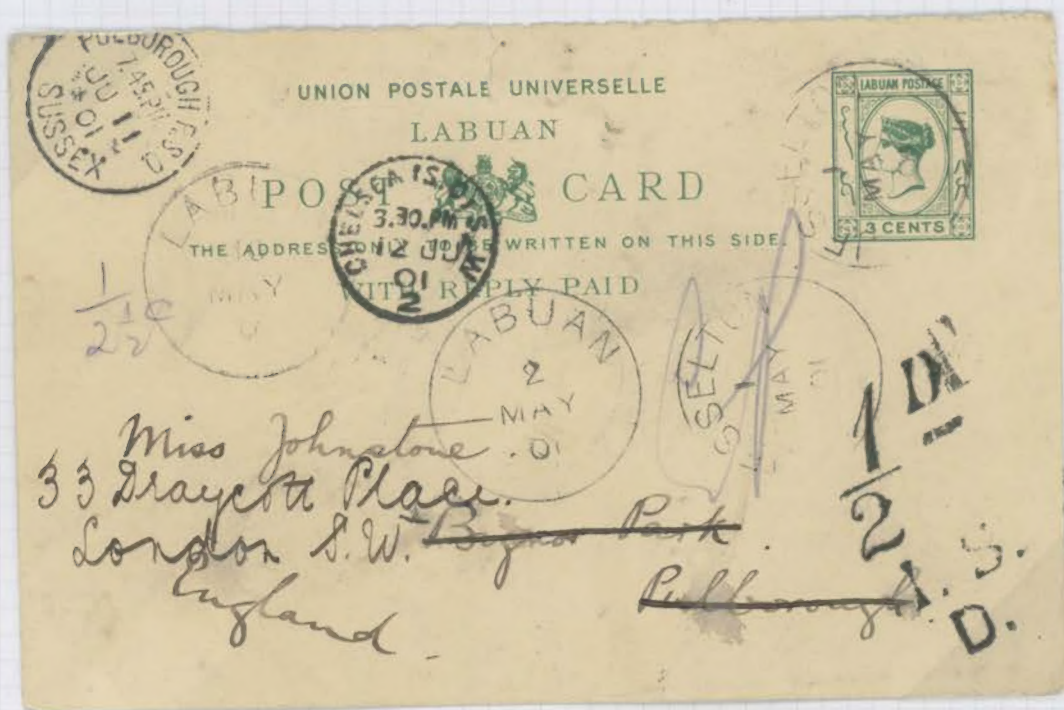 PULBOROUGH R.S.O.
7.45PM
JU 11
01
SUSSEX
UNION POSTALE UNIVERSELLE
LABUAN
POST CARD
THE ADDRESS ONLY TO BE WRITTEN ON THIS SIDE.
WITH REPLY PAID
LABUAN POSTAGE
3 CENTS
MAY
CHELSEA S.O. S.W
3.30.PM
12 JU
01
2
LABU
MAY
1
2½c
LABUAN
2
MAY
01
SELTO
MAY
01
1D
1/2
Miss Johnstone
33 Draycott Place.
London S.W. Bignor Park
England Pulborough
D.